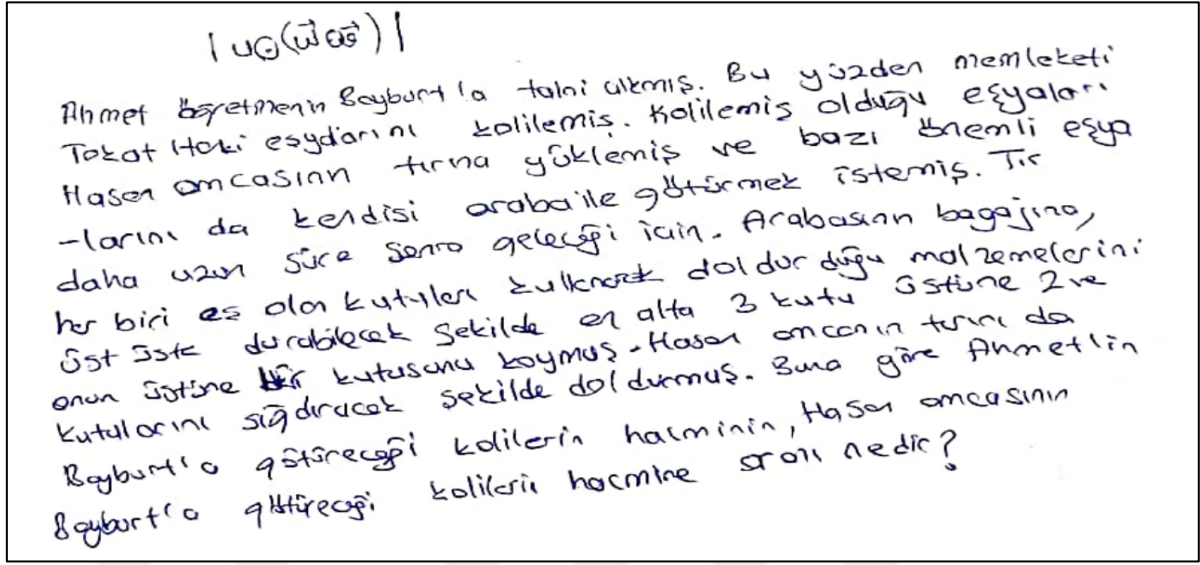 Ahmet öğretmenin Bayburt'a tahni çıkmış. Bu yüzden memleketi
Tokat'taki eşyalarını kolilemiş. Kolilemiş olduğu eşyaları
Hasan amcasının tırına yüklemiş ve bazı önemli eşya
-larını da kendisi araba ile götürmek istemiş. Tır
daha uzun süre sonra geleceği için. Arabasının bagajına,
her biri eş olan kutuları kullanarak doldurduğu malzemelerini
üst üste durabilecek şekilde en alta 3 kutu üstüne 2 ve
onun üstüne bir kutusunu koymuş. Hasan amcanın tırını da
kutularını sığdıracak şekilde doldurmuş. Buna göre Ahmet'in
Bayburt'a götüreceği kolilerin hacminin, Hasan amcasının
Bayburt'a götüreceği kolilerin hacmine oranı nedir?